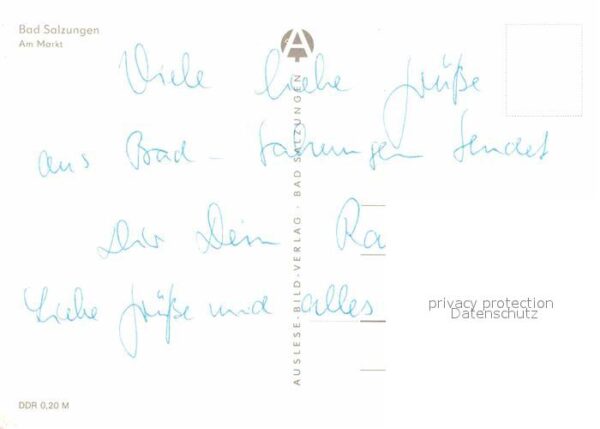 Bad Salzungen
Am Markt
Viele liebe Grüße
aus Bad-Salzungen sendet
Dir Dein Ra
Liebe Grüße und alles
AUSLESE-BILD-VERLAG · BAD SALZUNGEN
DDR 0,20 M
privacy protection
Datenschutz